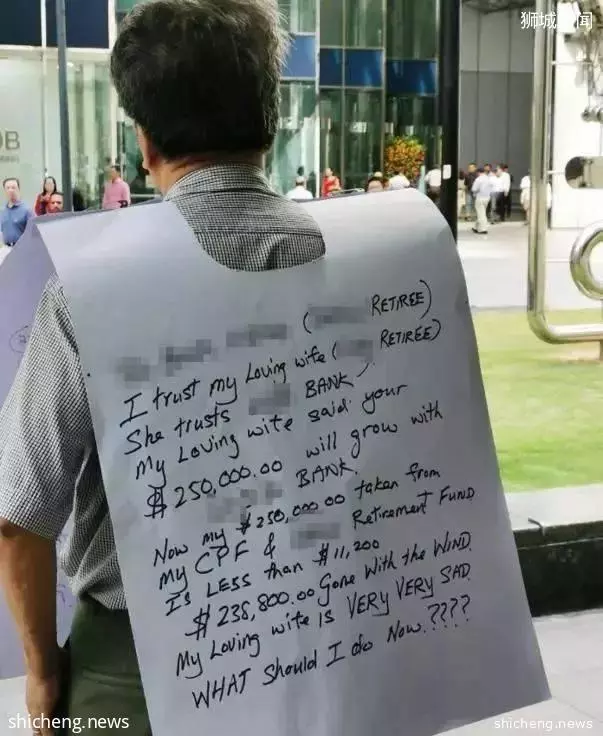 狮城新闻
OB
(RETIREE)
I trust my Loving wife ( RETIREE)
She trusts BANK).
My Loving wife said your
$250,000.00 will grow with
BANK.
Now my $250,000.00 taken from
my CPF & Retirement FUND
Is LESS than $11,200
$238,800.00 Gone With the WIND.
My Loving wife IS VERY VERY SAD.
WHAT Should I do Now.????
shicheng.news
shicheng.news